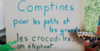 Comptines
pour les petits et
les grands
les crocodiles
un éléphant